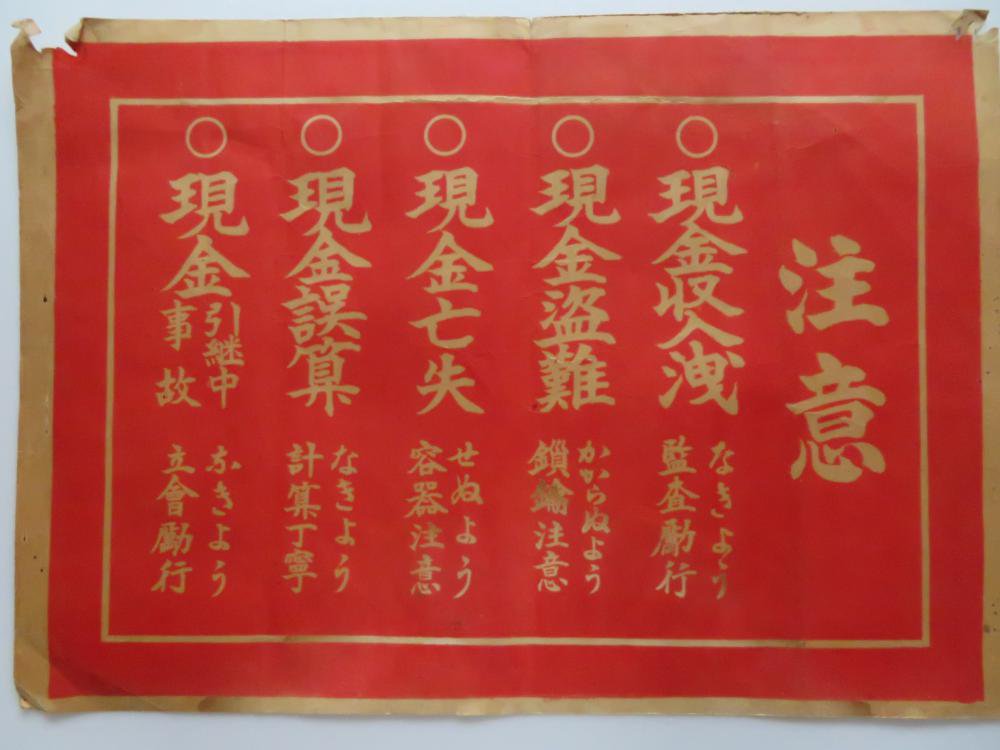 注意
○現金収入洩
なきよう
監査励行
○現金盗難
かからぬよう
鎖鑰注意
○現金亡失
せぬよう
容器注意
○現金誤算
なきよう
計算丁寧
○現金
引継中
事故
なきよう
立會励行